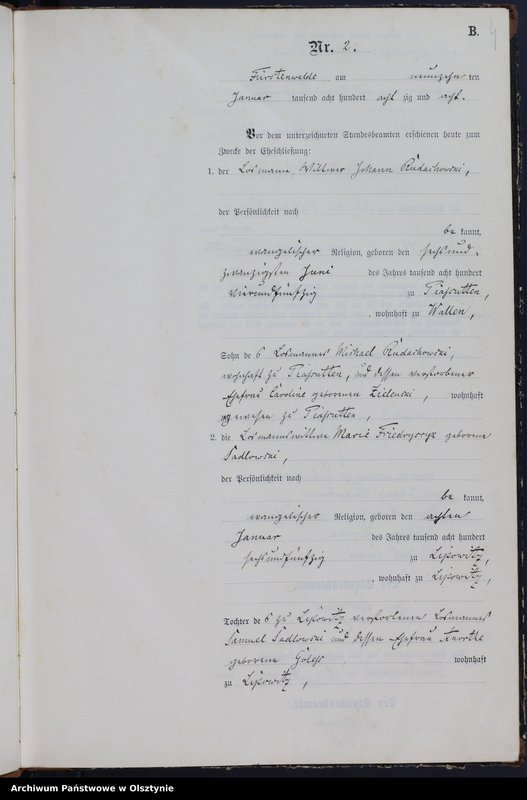 B.
Nr. 2.
Fürstenwalde am neunzehn ten
Januar tausend acht hundert acht zig und acht.
Vor dem unterzeichneten Standesbeamten erschienen heute zum
Zwecke der Eheschließung:
1. der Losmann, Wittwer Johann Rudachowski,
der Persönlichkeit nach
be kannt,
evangelischer Religion, geboren den sechsund-
zwanzigsten Juni des Jahres tausend acht hundert
vierundfünfzig zu Piasutten,
, wohnhaft zu Wallen,
Sohn de s Losmannes Michael Rudachowski,
wohnhaft zu Piasutten, und dessen verstorbener
Ehefrau Caroline geborenen Zielenski, wohnhaft
gewesen zu Piasutten,
2. die Losmannswittwe Marie Friedryszyk geborene
Sadlowski,
der Persönlichkeit nach
be kannt,
evangelischer Religion, geboren den achten
Januar des Jahres tausend acht hundert
sechsundfünfzig zu Lipowitz,
, wohnhaft zu Lipowitz,
Tochter de s zu Lipowitz verstorbenen Losmannes
Samuel Sadlowski und dessen Ehefrau Anorthe
geborene wohnhaft
zu Lipowitz,
Archiwum Państwowe w Olsztynie